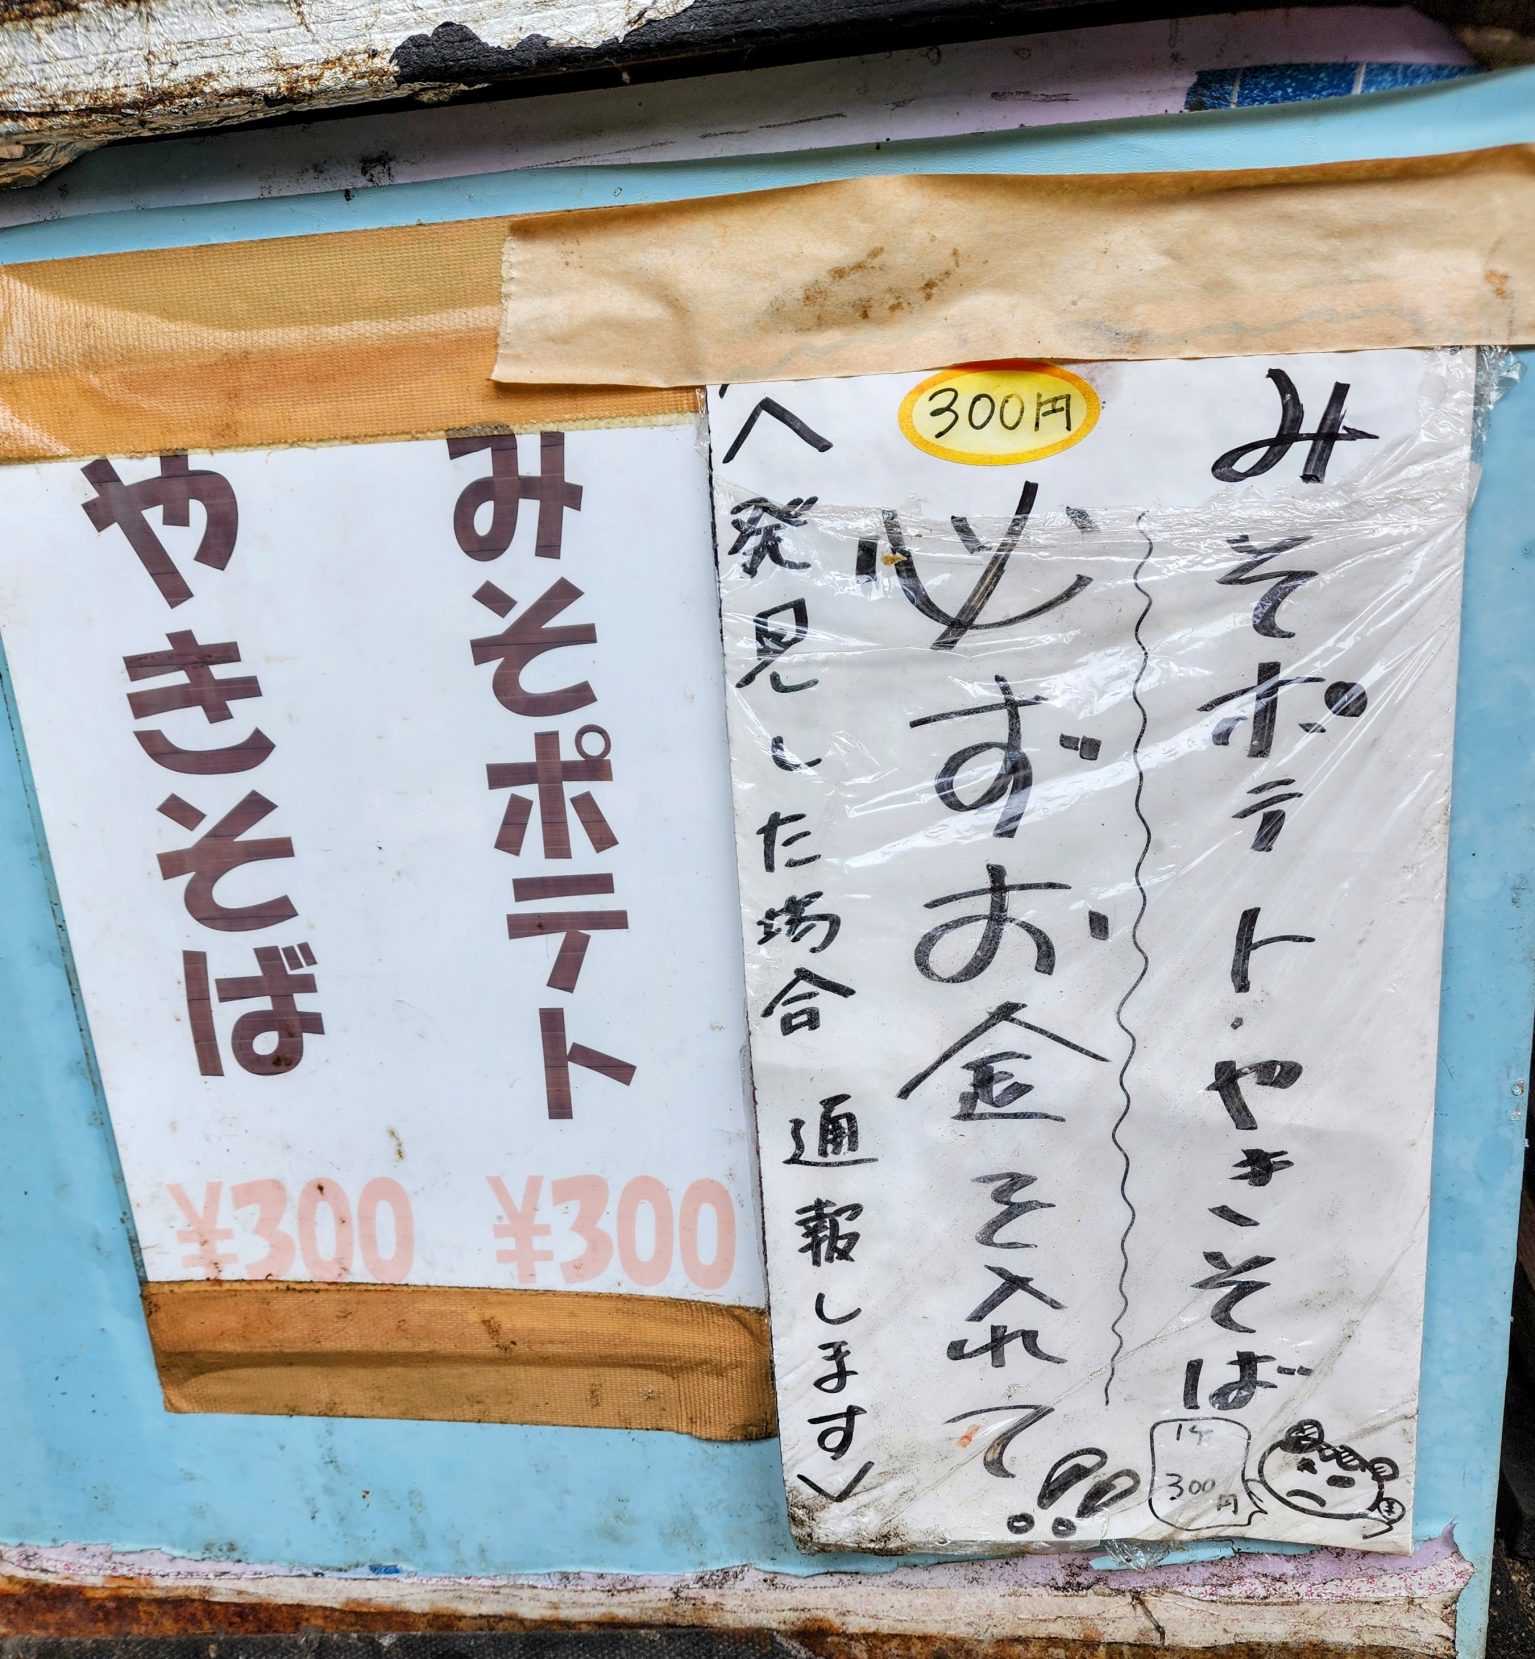 みそポテト・やきそば
300円
必ずお金を入れて!!
〈発見した場合 通報します〉
1ケ
300円
みそポテト
¥300
やきそば
¥300